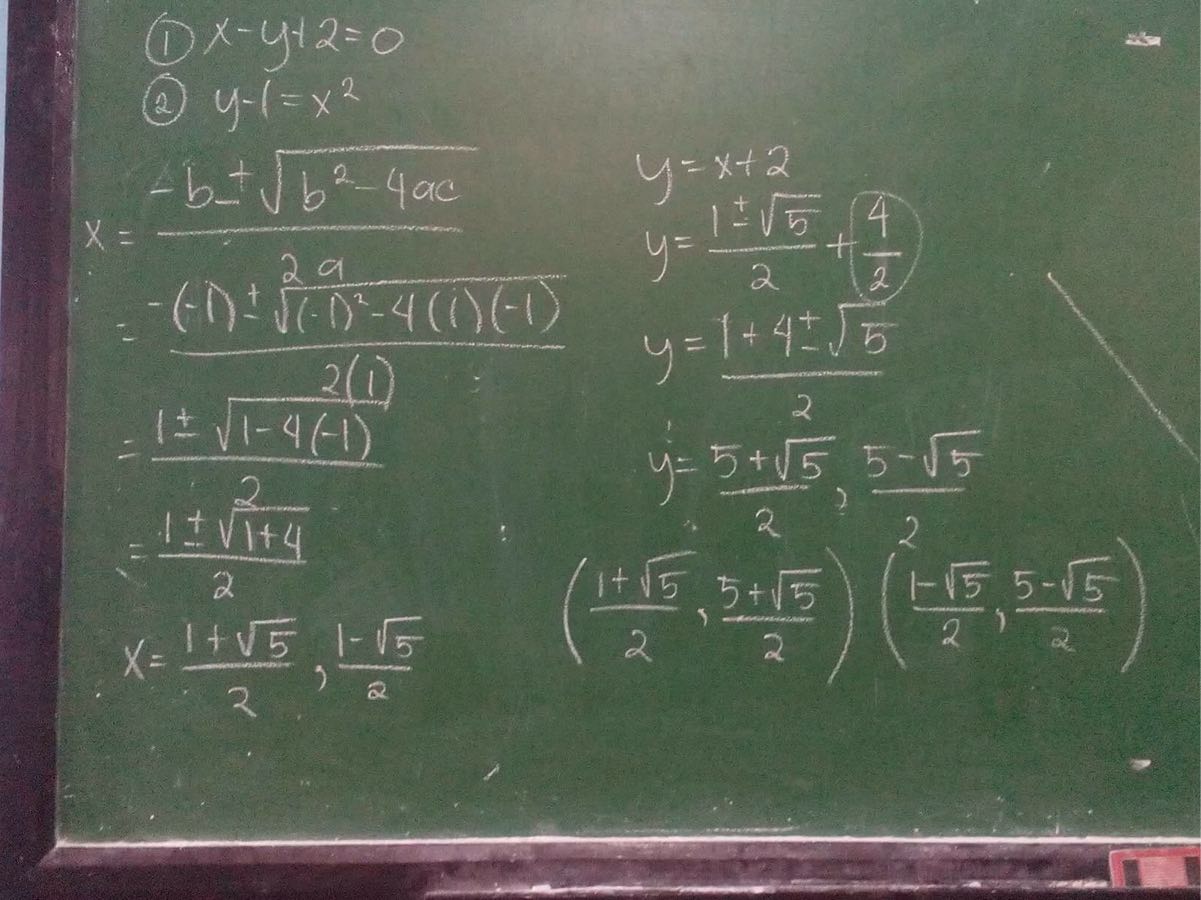 ① x-y+2=0
② y-1=x²
x = (-b±√(b²-4ac))/(2a)
= (-(-1)±√((-1)²-4(1)(-1)))/(2(1))
= (1±√(1-4(-1)))/2
= (1±√(1+4))/2
x = (1+√5)/2, (1-√5)/2
y=x+2
y = (1±√5)/2 + 4/2
y = (1+4±√5)/2
y = (5+√5)/2, (5-√5)/2
((1+√5)/2, (5+√5)/2) ((1-√5)/2, (5-√5)/2)